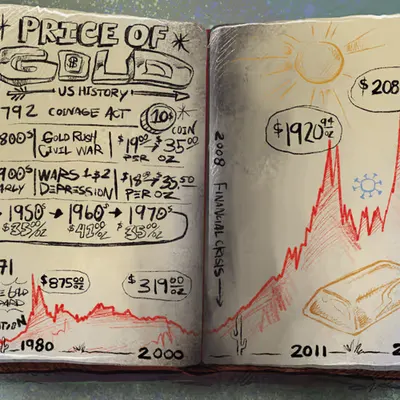 PRICE OF
GOLD
US HISTORY
792 COINAGE ACT
10$
COIN
800s GOLD RUSH
CIVIL WAR
PER OZ
$35.00
900s
EARLY
WARS 1+2
DEPRESSION
$35.50
PER OZ
1950s → 1960s → 1970s
71
$875 00 OZ
$319 00 OZ
1980
2000
2008 FINANCIAL CRISIS →
$1920 94 OZ
$208
2011
2